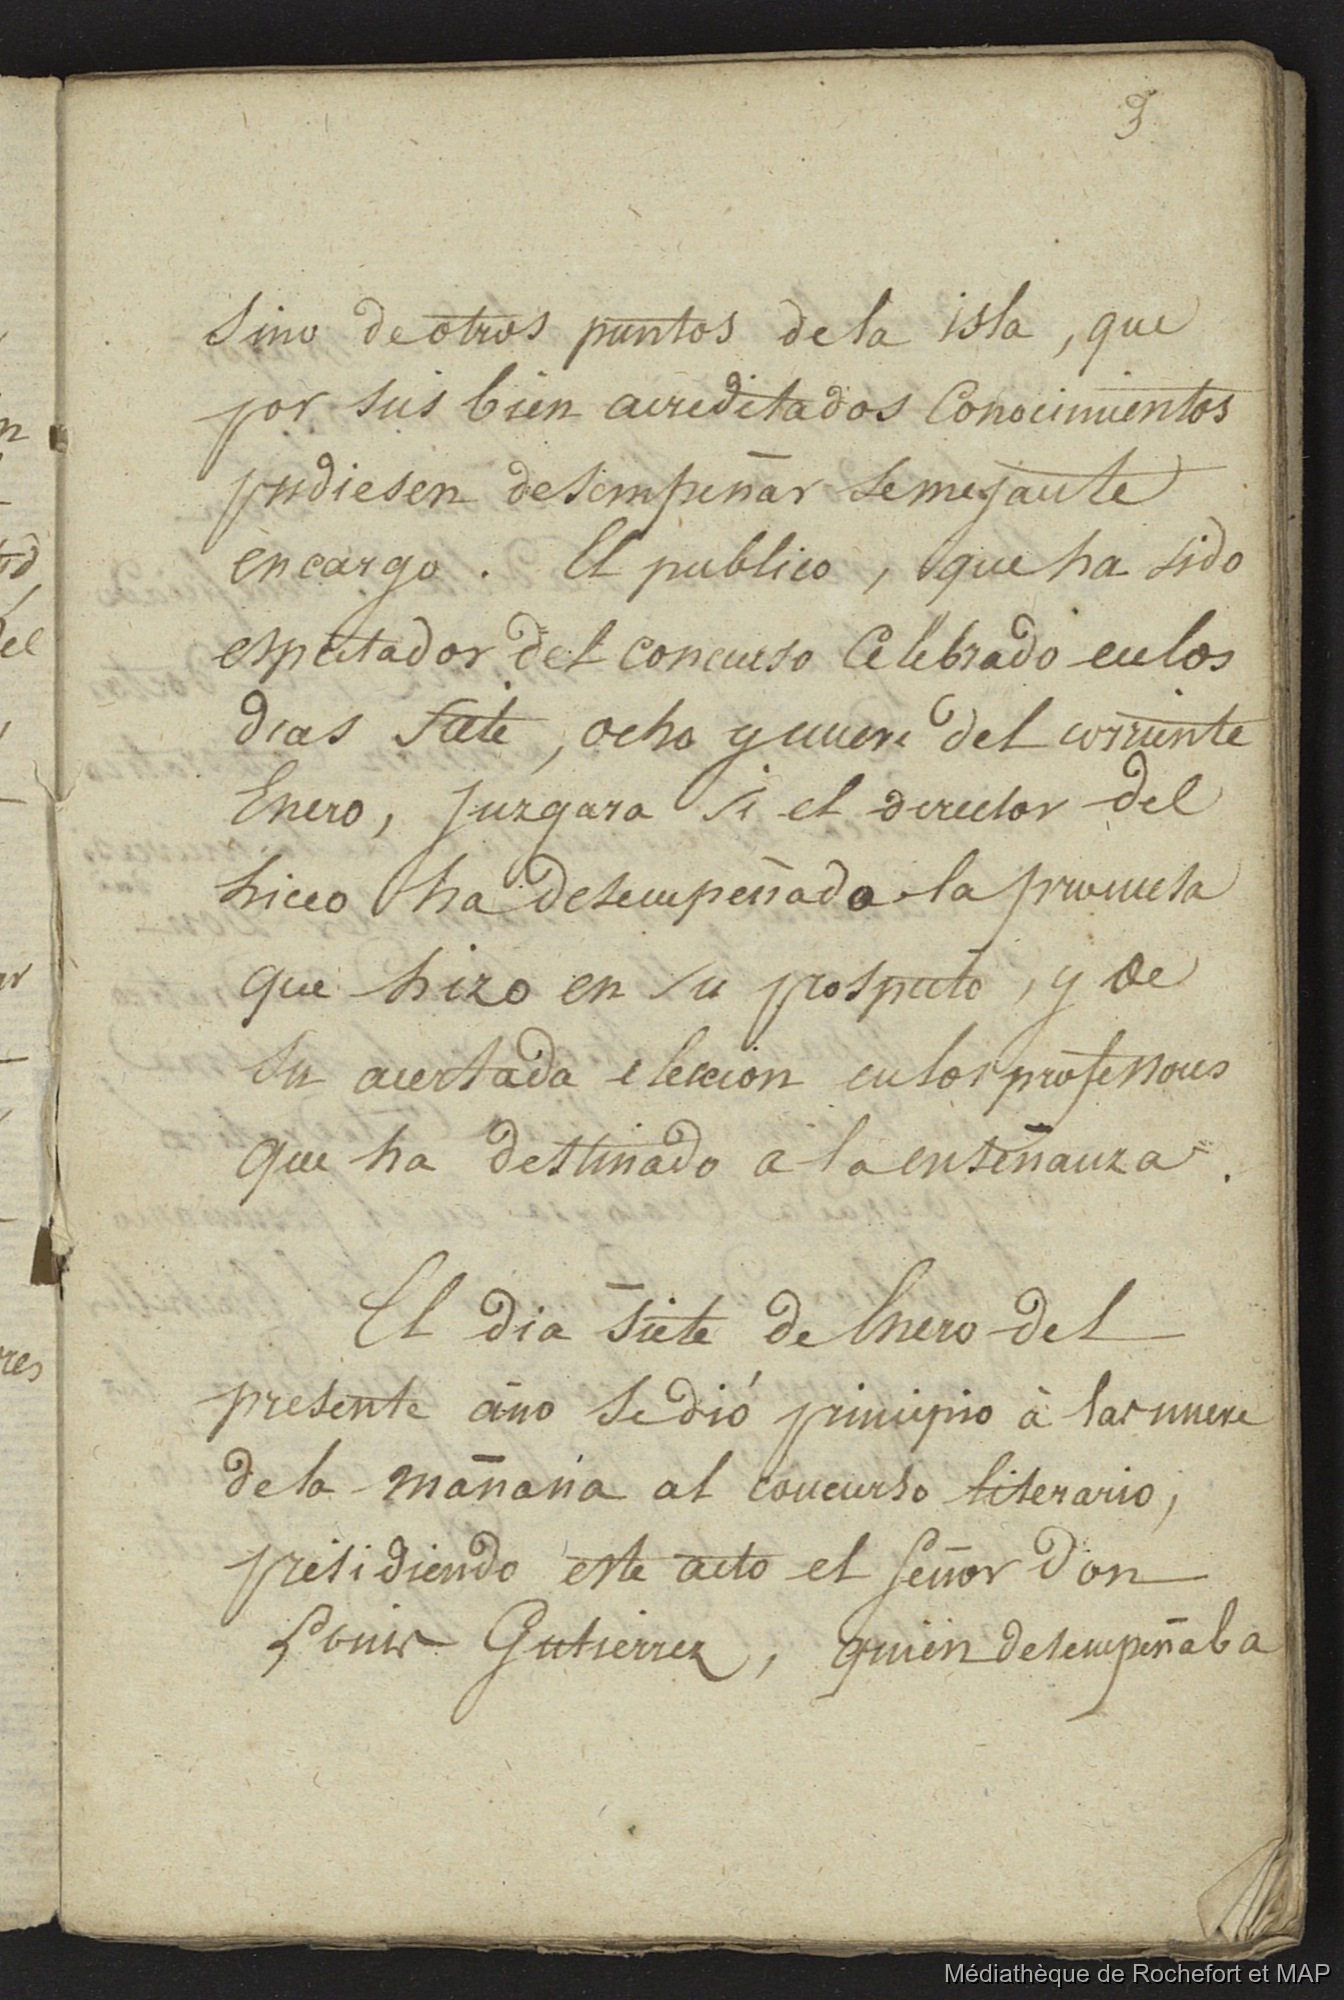 3
sino de otros puntos de la isla, que
por sus bien acreditados Conocimientos
pudiesen desempeñar semejante
encargo. El publico, que ha sido
espectador del concurso Celebrado en los
dias siete, ocho y nueve del corriente
Enero, juzgara si el director del
liceo ha desempeñado la promesa
que hizo en su prospecto, y de
su acertada eleccion en los professores
que ha destinado a la enseñanza.
El dia siete de Enero del
presente año se dió principio à las nueve
de la mañana al concurso literario,
presidiendo este acto el Señor Don
Louis Gutierrez, quien desempeñaba
Médiathèque de Rochefort et MAP